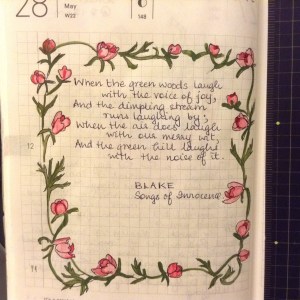 28
May
W22
148
When the green woods laugh
with the voice of joy,
And the dimpling stream
runs laughing by;
When the air does laugh
with our merry wit,
And the green hill laughs
with the noise of it.
12
BLAKE
Songs of Innocence